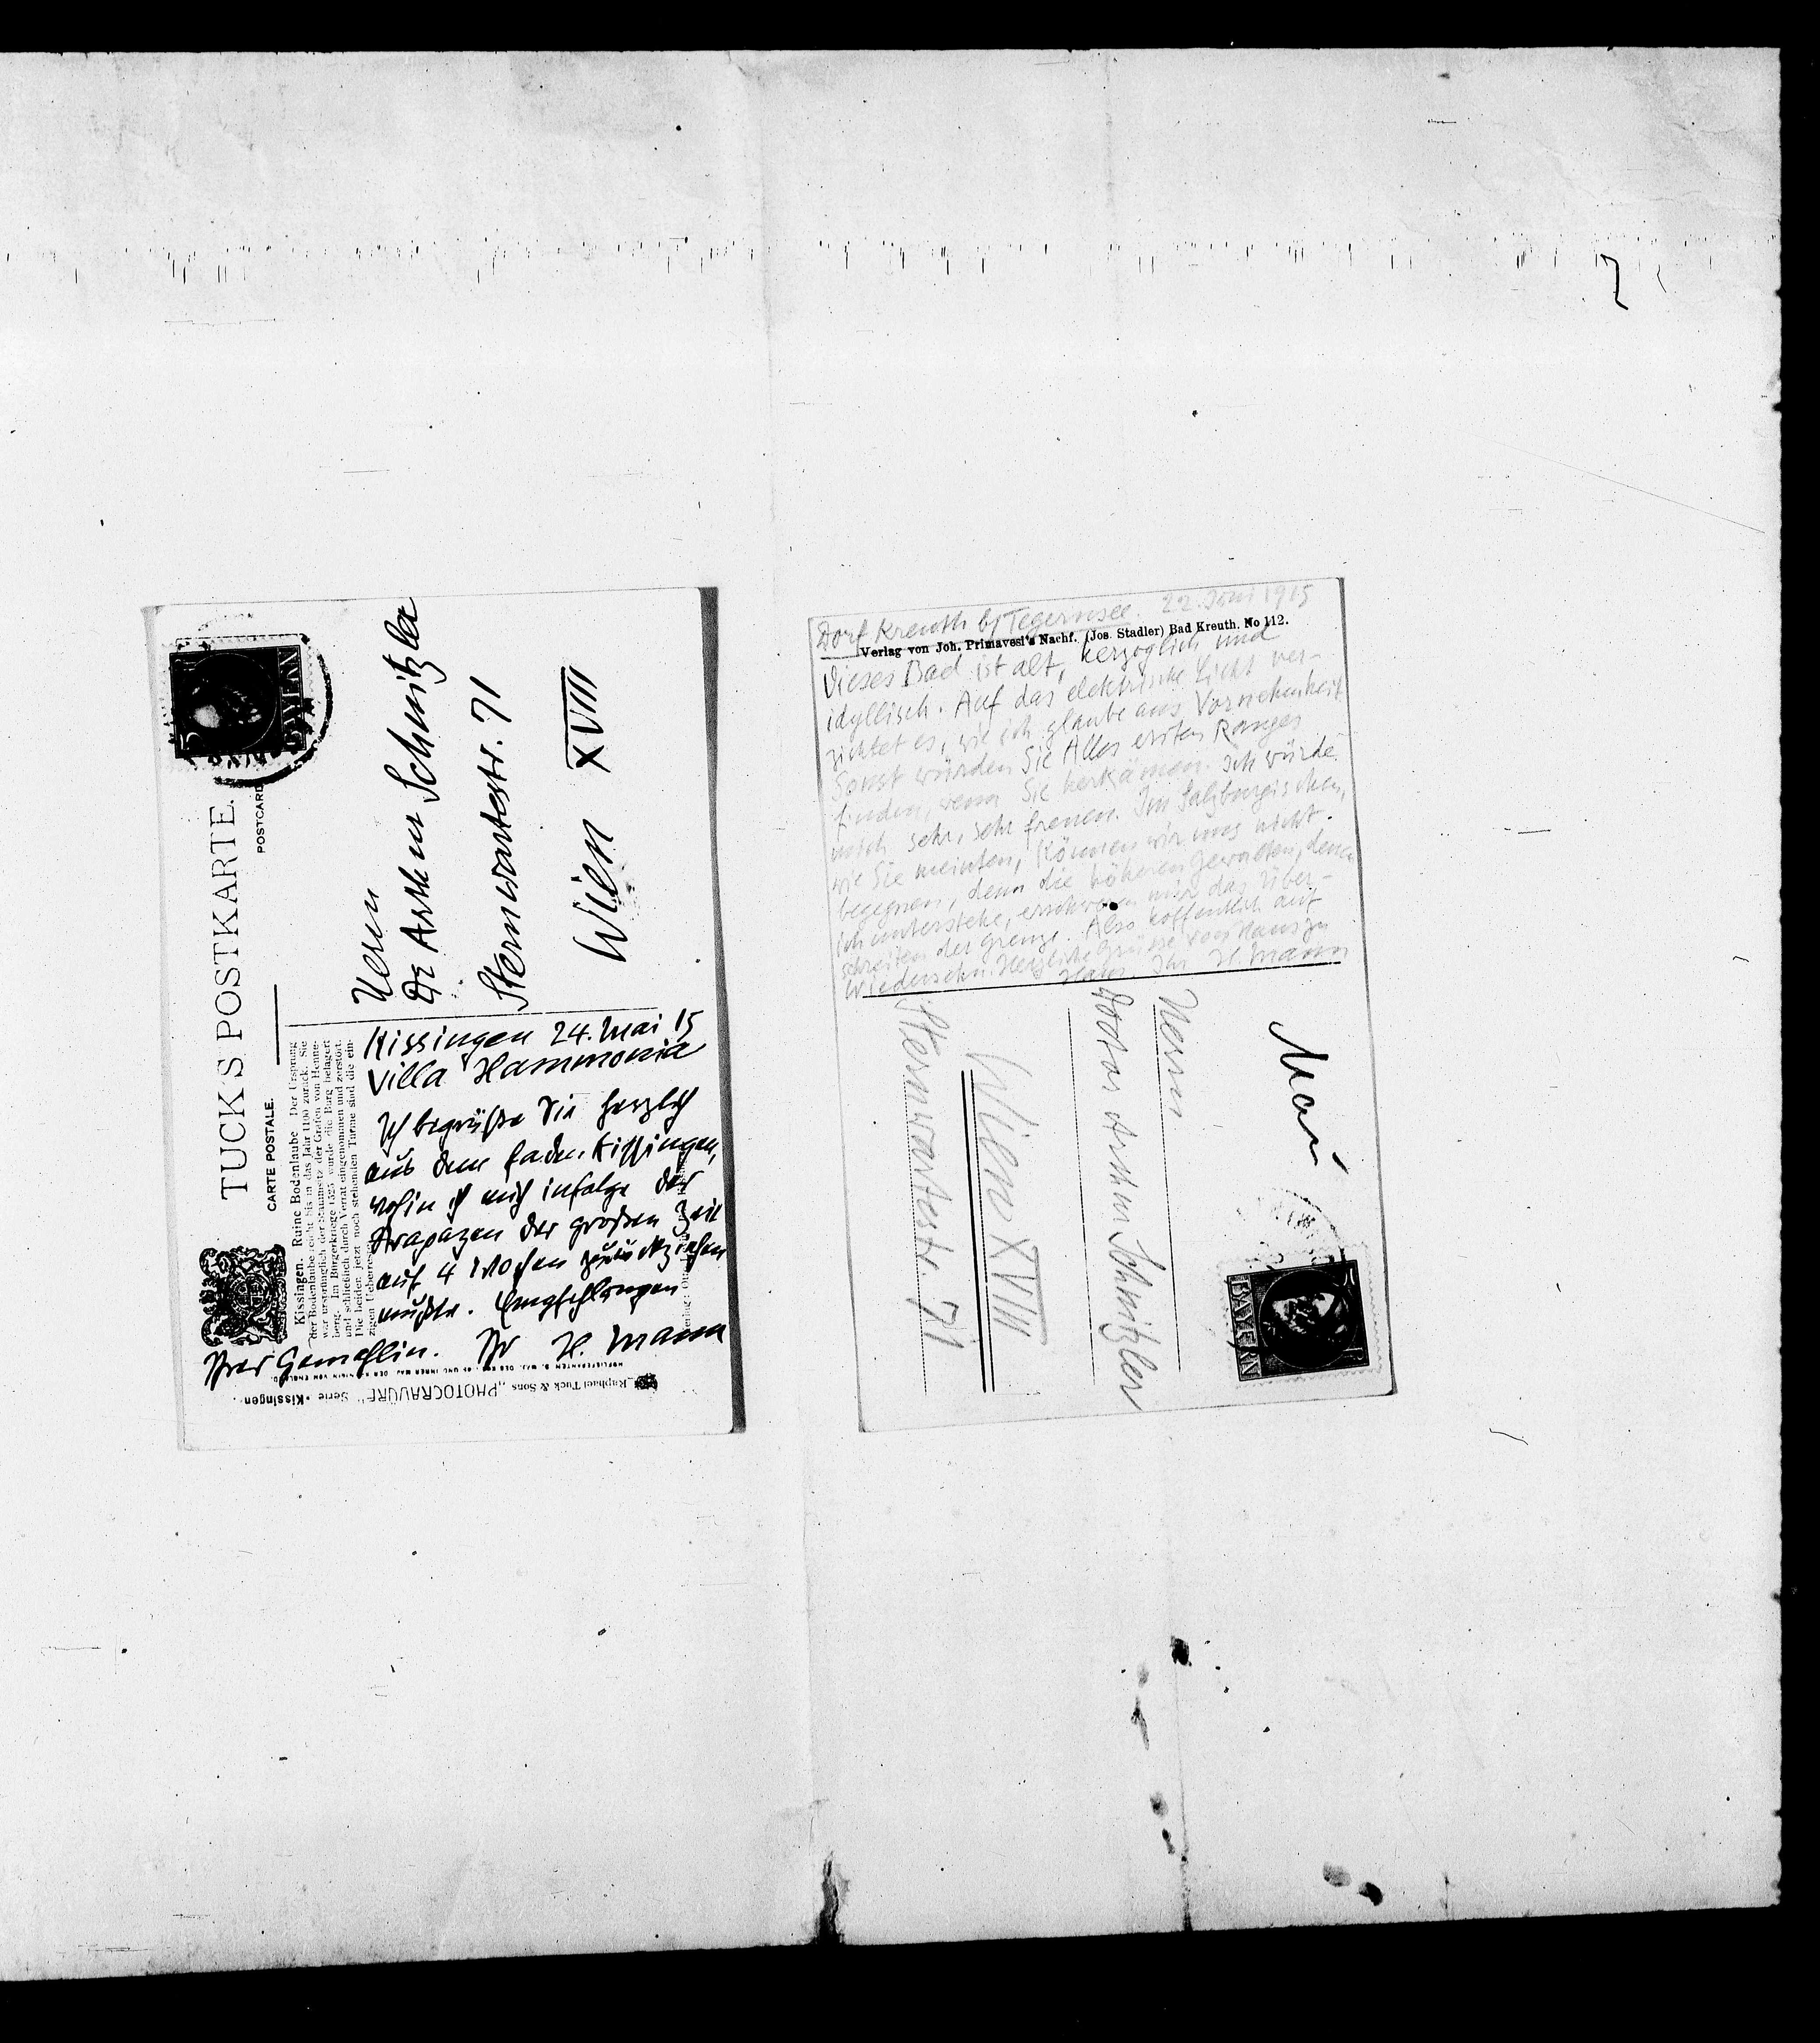 TUCK'S POSTKARTE.
CARTE POSTALE.
POSTCARD
BAYERN
5
Herrn
Dr Arthur Schnitzler
Sternwartestr. 71
Wien XVIII
Kissingen. Ruine Bodenlaube Der Ursprung
der Bodenlaube reicht bis in das Jahr 1100 zurück. Sie
war ursprünglich der Stammsitz der Grafen von Henne-
berg. Im Bürgerkriege 1525 wurde die Burg belagert
und schließlich durch Verrat eingenommen und zerstört.
Die beiden jetzt noch stehenden Türme sind die ein-
zigen Ueberreste
Kissingen 24. Mai 15
Villa Hammonia
Ich begrüße Sie herzlich
aus dem faden Kissingen,
wohin ich mich infolge der
Strapazen der großen Zeit
auf 4 Wochen zurückziehen
mußte. Empfehlungen
Ihrer Gemahlin. Ihr H. Mann
HOFLIEFERANTEN S. MAJ. DES KÖNIGS UND IHRER MAJ. DER KÖNIGIN VON ENGLAND.
Raphael Tuck & Sons „PHOTOGRAVURE" Serie • Kissingen.
Dorf Kreuth b/ Tegernsee. 22. Juni 1915
Verlag von Joh. Primavesi's Nachf. (Jos. Stadler) Bad Kreuth. No 112.
Dieses Bad ist alt, herzoglich und
idyllisch. Auf das elektrische Licht ver-
zichtet es, wie ich glaube aus Vornehmheit
Sonst würden Sie Alles ersten Ranges
finden, wenn Sie herkämen. Ich würde
mich sehr, sehr freuen. Im Salzburgischen,
wie Sie meinten, können wir uns nicht
begegnen, denn die höheren Gewalten, denen
ich unterstehe, erschweren mir das Über-
schreiten der Grenze. Also hoffentlich auf
Wiedersehn. Herzliche Grüsse von Haus zu
Haus Ihr H. Mann
Herrn
Doctor Arthur Schnitzler
Wien XVIII
Sternwartestr. 71
BAYERN
5